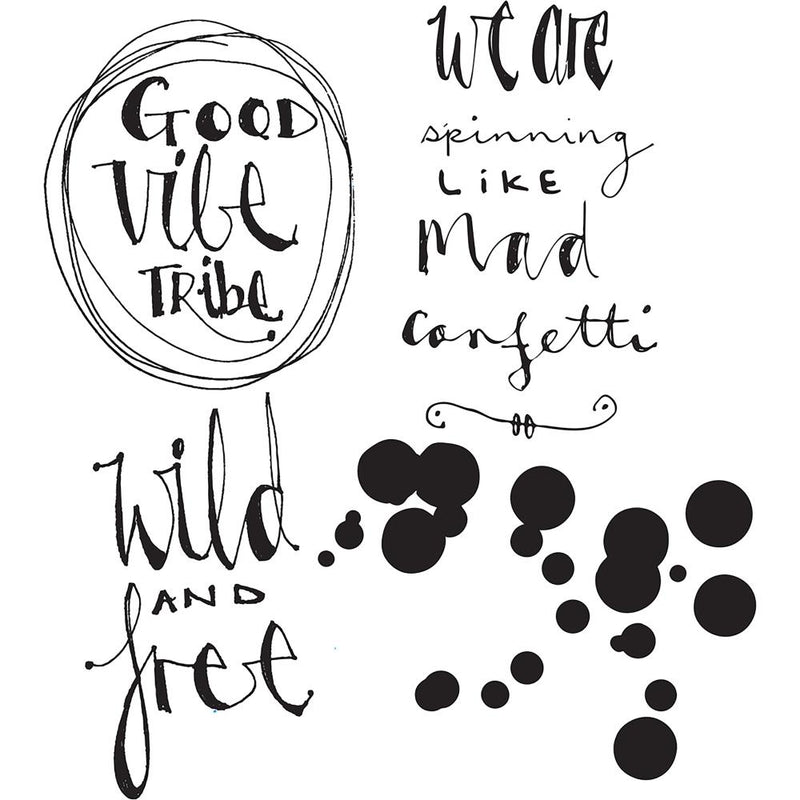 GOOD
Vibe
TRibe
we are
spinning
LiKE
Mad
Confetti
wild
AND
free